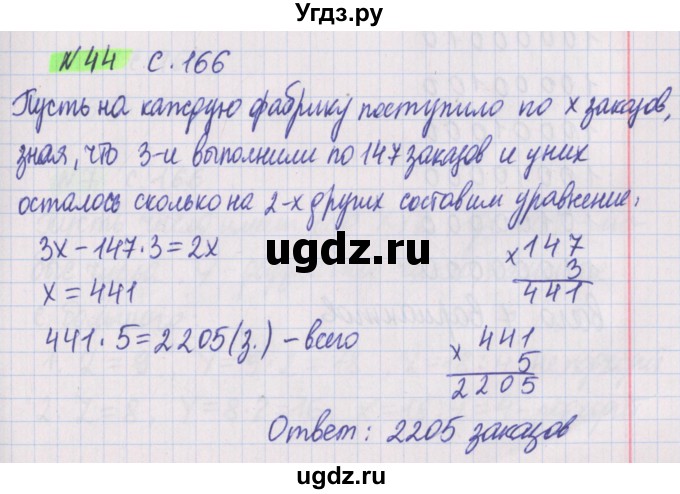 Угдз.ру
№44 с.166
Пусть на каждую фабрику поступило по x заказов,
зная, что 3-и выполнили по 147 заказов и у них
осталось сколько на 2-х других составим уравнение:
3x - 147·3 = 2x
x = 441
441·5 = 2205 (з.) - всего
× 147
3
441
× 441
5
2205
Ответ: 2205 заказов
ugdz.ru
ugdz.ru
ugdz.ru
ugdz.ru